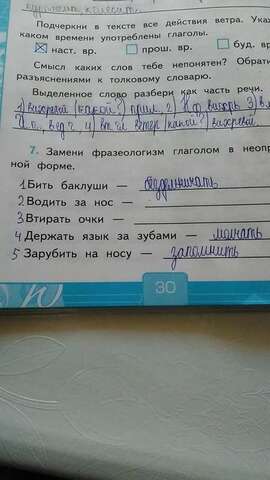 Подчеркни в тексте все действия ветра. Ука
каком времени употреблены глаголы.
☒ наст. вр. ☐ прош. вр. ☐ буд. вр
Смысл каких слов тебе непонятен? Обрати
разъяснениями к толковому словарю.
Выделенное слово разбери как часть речи.
1) вихревой (какой?) прил. 2) Н.ф. вихрь 3) в
ветер (какой?) вихревой.
7. Замени фразеологизм глаголом в неопр
ной форме.
1 Бить баклуши — бездельничать
2 Водить за нос —
3 Втирать очки —
4 Держать язык за зубами — молчать
5 Зарубить на носу — запомнить
30